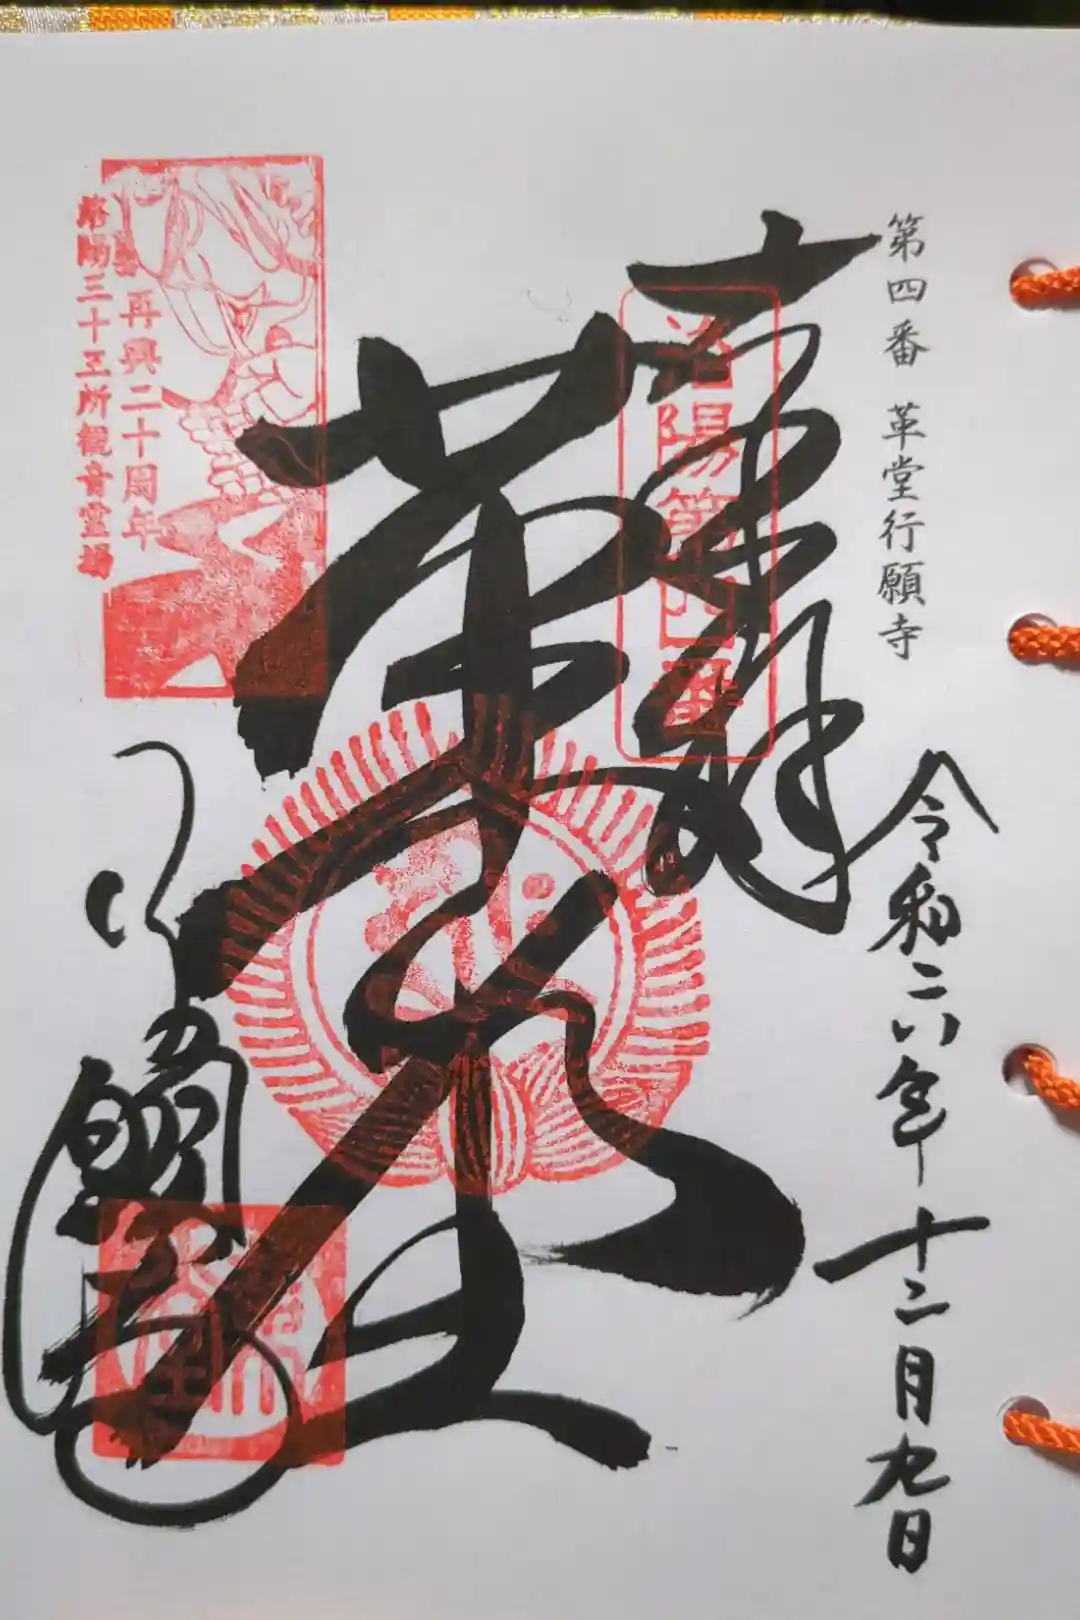 第四番 革堂行願寺
令和六年十二月九日
奉拝
洛陽第四番
革堂
行願寺
再興二十周年
洛陽三十三所観音霊場